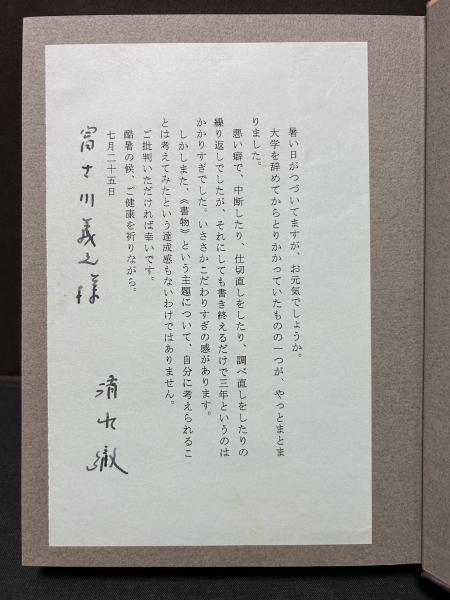 暑い日がつづいてますが、お元気でしょうか。
大学を辞めてからとりかかっていたものの一つが、やっとまとま
りました。
悪い癖で、中断したり、仕切直しをしたり、調べ直しをしたりの
繰り返しでしたが、それにしても書き終えるだけで三年というのは
かかりすぎでした。いささかこだわりすぎの感があります。
しかしまた、《書物》という主題について、自分に考えられるこ
とは考えてみたという達成感もないわけではありません。
ご批判いただければ幸いです。
酷暑の候、ご健康を祈りながら。
七月二十五日
富士川義之様
清水徹